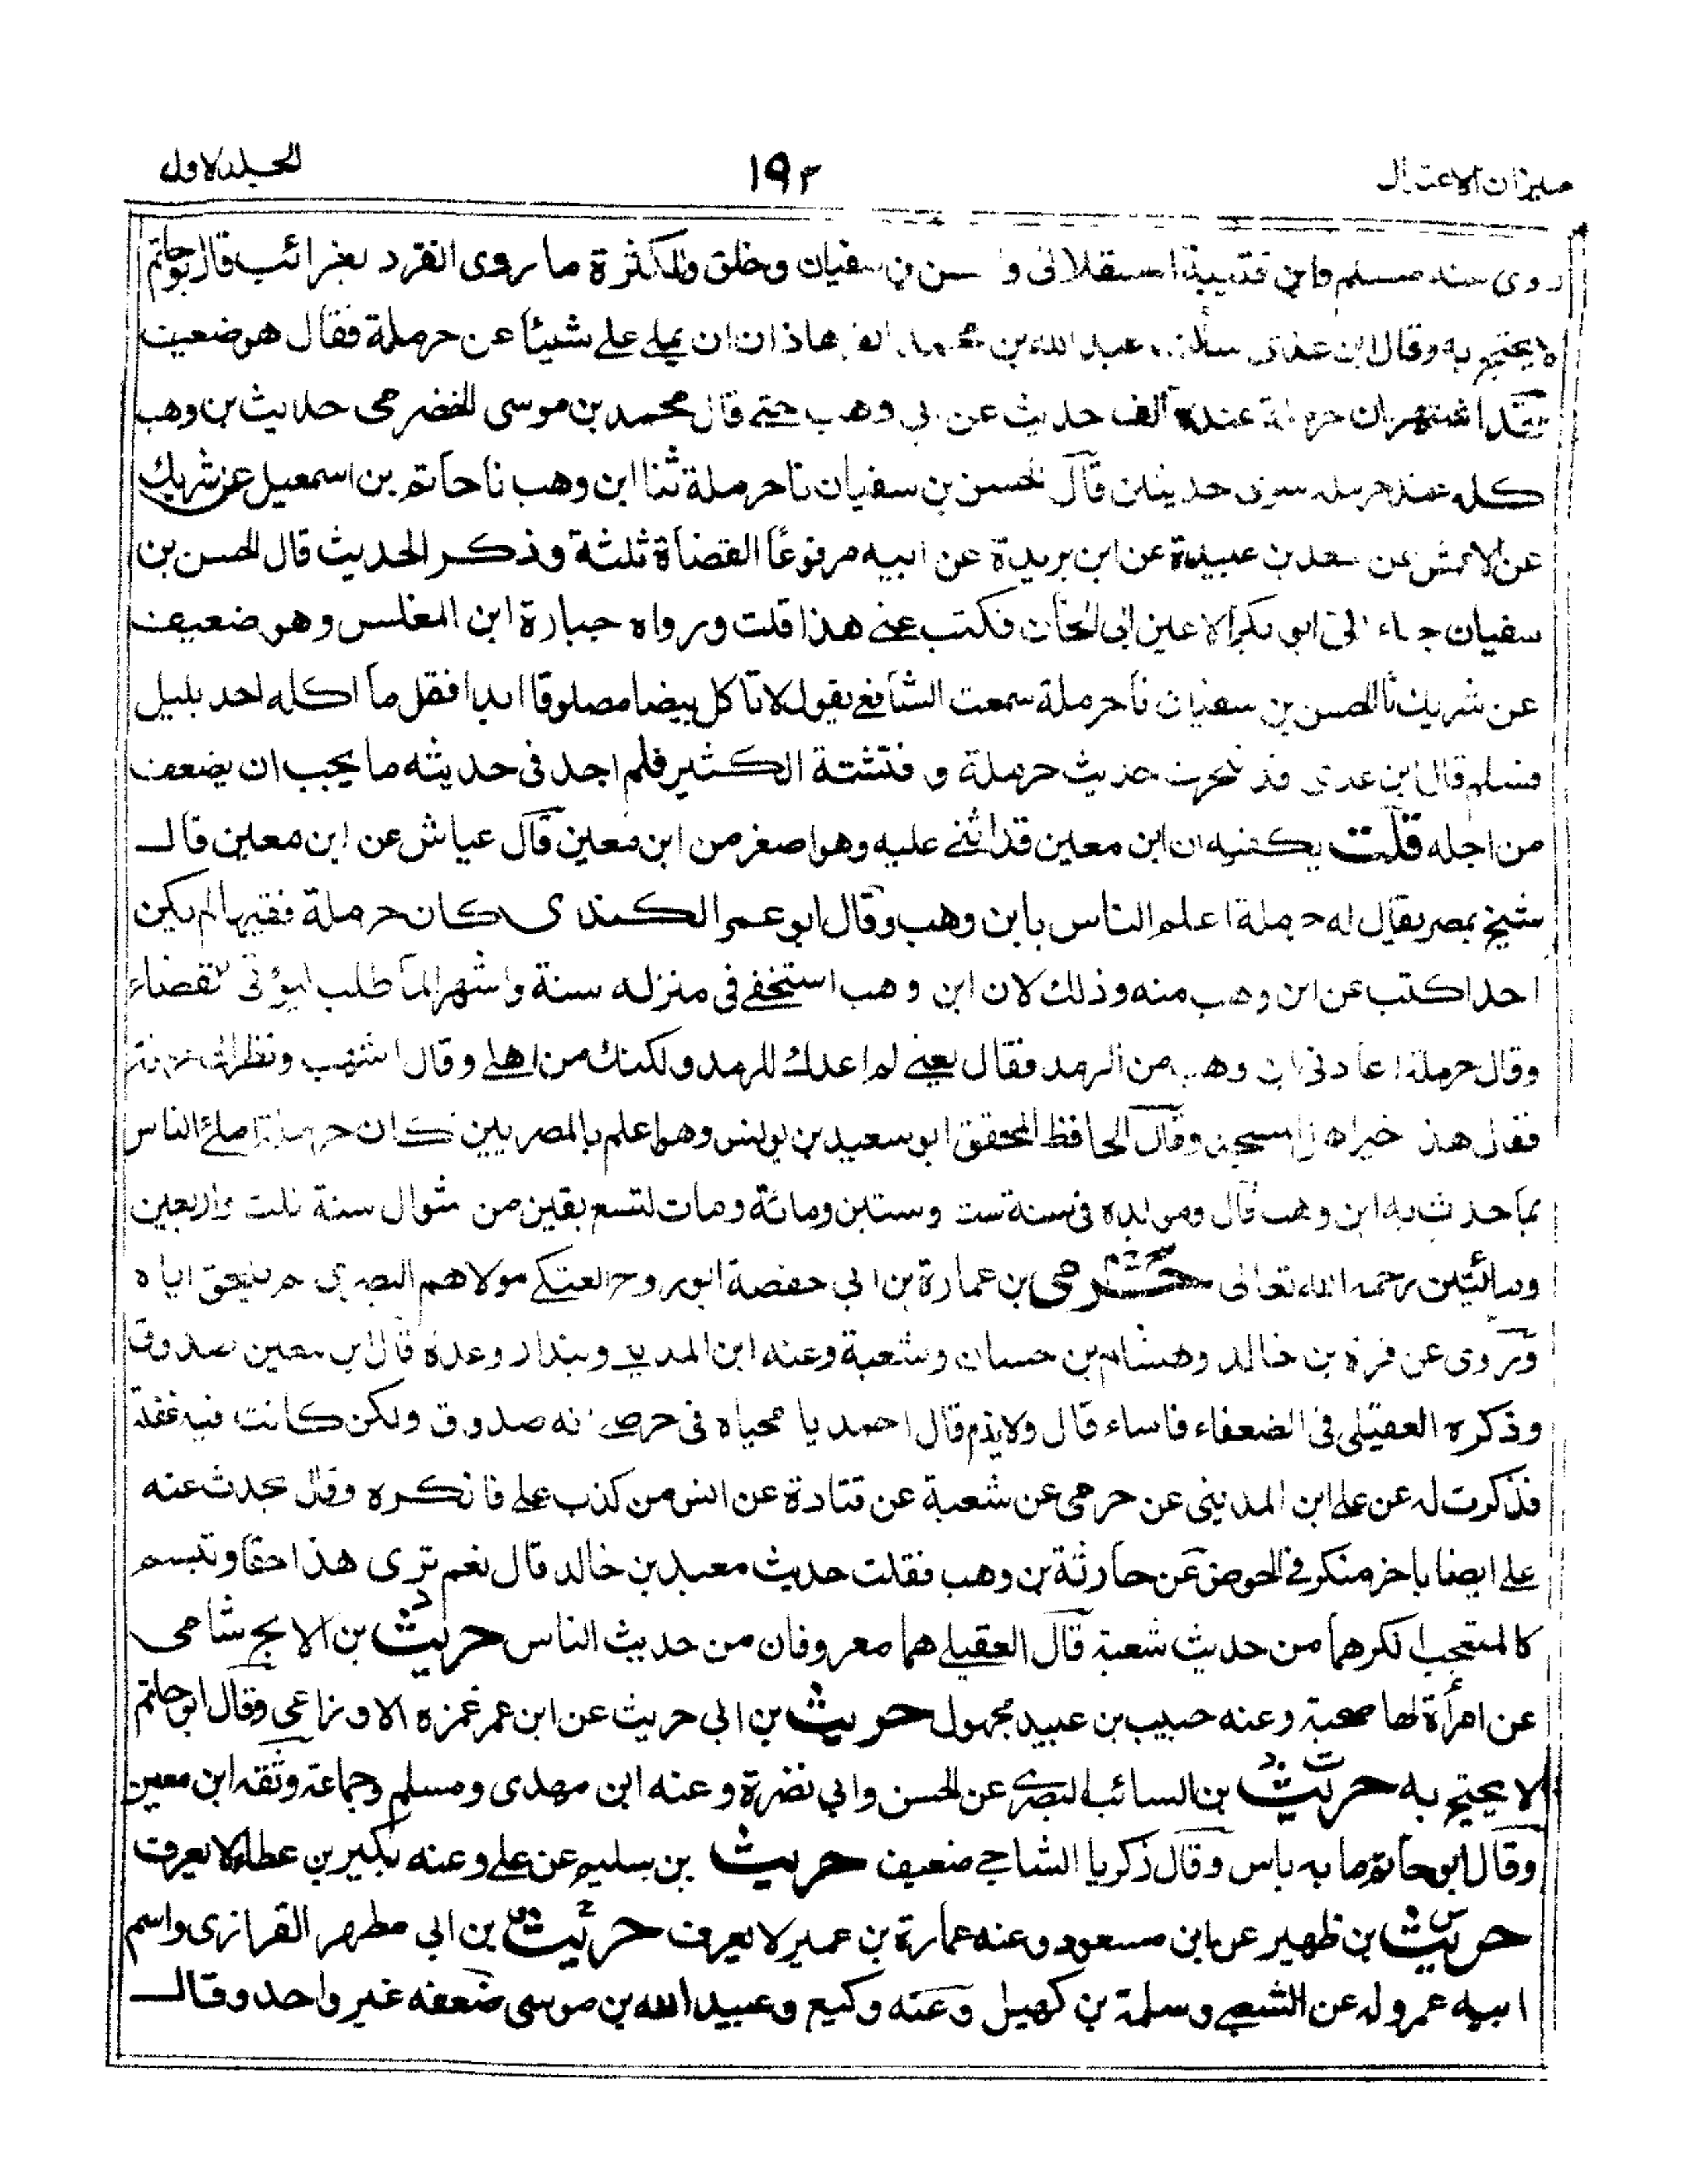 ميزان الاعتدال ١٩٢ المجلد الاول
روى عنه مسلم وابن قتيبة العسقلانى والحسن بن سفيان وخلق ولكثرة ما روى انفرد بغرائب قال ابو حاتم
لا يحتج به وقال ابن عدى سألت عبد الله بن محمد الفرهاذانى ان يملى على شيئا عن حرملة فقال هو ضعيف
حرملة عنده الف حديث عن وهب حتى قال محمد بن موسى الحضرمى حديث بن وهب
كله عند حرملة سوى حديثين قال الحسن بن سفيان نا حرملة ثنا ابن وهب نا حاتم بن اسمعيل عن شريك
عن الاعمش عن سعد بن عبيدة عن ابن بريدة عن ابيه مرفوعا القضاة ثلثة وذكر الحديث قال الحسن بن
سفيان جاء الى ابو بكر الاعين الى الخان فكتب عنى هذا قلت ورواه جبارة ابن المغلس وهو ضعيف
عن شريك نا الحسن بن سفيان نا حرملة سمعت الشافعى يقول لا تاكل بيضا مصلوقا ابدا فقل ما اكله احد بليل
فسلم قال ابن عدى قد تبحرت حديث حرملة و فتشتة الكثير فلم اجد فى حديثه ما يجب ان يضعف
من اجله قلت يكفيه ان ابن معين قد اثنى عليه وهو اصغر من ابن معين قال عياش عن ابن معين قال
شيخ بمصر يقال له حرملة اعلم الناس بابن وهب وقال ابو عمر الكندى كان حرملة فقيها لم يكن
احد اكتب عن ابن وهب منه وذلك لان ابن وهب استخفى فى منزله سنة واشهر لما طلب ليؤتى لقضاء
وقال حرملة اعادنى ابن وهب من الرمد فقال يعنى لم اعدك للرمد ولكنك من اهلى وقال اشهب ونظر الى حرملة
فقال هذا خير اهل المسجد وقال الحافظ المحقق ابو سعيد بن يونس وهو اعلم بالمصريين كان حرملة املئ الناس
بما حدث به ابن وهب قال ومولده فى سنة ست وستين ومائة ومات لتسع بقين من شوال سنة ثلث واربعين
ومائتين رحمه الله تعالى حرمى بن عمارة بن ابى حفصة ابو روح العتكى مولاهم البصرى لم يلحق اباه
وروى عن قرة بن خالد وهشام بن حسان وشعبة وعنه ابن المدينى وبندار وعدة قال ابن معين صدوق
وذكره العقيلى فى الضعفاء فاساء قال ولا يذم قال احمد يا محياه فى حرمى انه صدوق ولكن كانت فيه غفلة
فذكرت له عن على ابن المدينى عن حرمى عن شعبة عن قتادة عن انس من كذب على فانكره وقال يحدث عنه
على ايضا باخر منكر فى الحوض عن حارثة بن وهب فقلت حديث معبد بن خالد قال نعم ترى هذا حقا وتبسم
كالمتعجب انكرهما من حديث شعبة قال العقيلى هما معروفان من حديث الناس حريث بن الابج شامى
عن امرأة لها صحبة وعنه حبيب بن عبيد مجهول حريث بن ابى حريث عن ابن عمر غمزه الاوزاعى وقال ابو حاتم
لا يحتج به حريث بن السائب البصرى عن الحسن وابى نضرة وعنه ابن مهدى ومسلم وجماعة وثقه ابن معين
وقال ابو حاتم ما به باس وقال زكريا الساجى ضعيف حريث بن سليم عن على وعنه بكير بن عطاء لا يعرف
حريث بن ظهير عن ابن مسعود وعنه عمارة بن عمير لا يعرف حريث بن ابى مطهر الفزازى واسم
ابيه عمرو له عن الشعبى وسلمة بن كهيل وعنه وكيع وعبيد الله بن موسى ضعفه غير واحد وقال